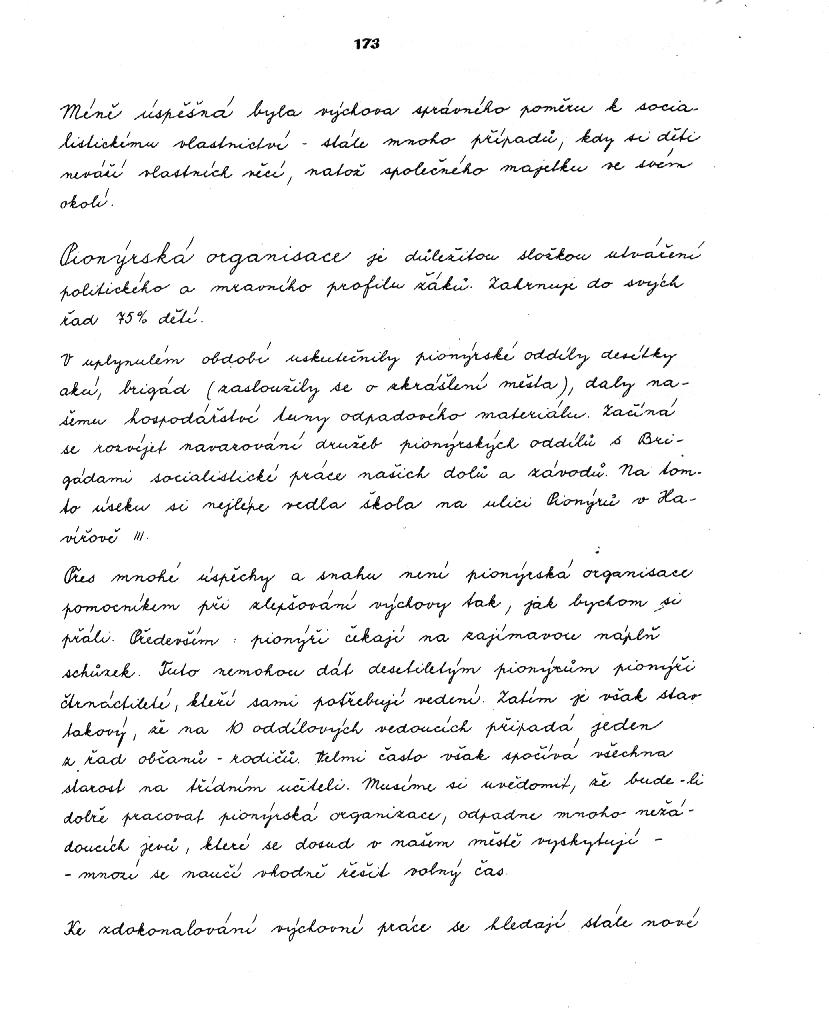 173
Méně úspěšná byla výchova správného poměru k socia-
listickému vlastnictví - stále mnoho případů, kdy si děti
neváží vlastních věcí, natož společného majetku ve svém
okolí.
Pionýrská organisace je důležitou složkou utváření
politického a mravního profilu žáků. Zahrnuje do svých
řad 75% dětí.
V uplynulém období uskutečnily pionýrské oddíly desítky
akcí, brigád (zasloužily se o zkrášlení města), daly na-
šemu hospodářství tuny odpadového materiálu. Začíná
se rozvíjet navazování družeb pionýrských oddílů s Bri-
gádami socialistické práce našich dolů a závodů. Na tom-
to úseku si nejlépe vedla škola na ulici Pionýrů v Ha-
vířově III.
Přes mnohé úspěchy a snahu není pionýrská organisace
pomocníkem při zlepšování výchovy tak, jak bychom si
přáli. Především : pionýři čekají na zajímavou náplň
schůzek. Tuto nemohou dát desetiletým pionýrům pionýři
čtrnáctiletí, kteří sami potřebují vedení. Zatím je však stav
takový, že na 10 oddílových vedoucích připadá jeden
z řad občanů - rodičů. Velmi často však spočívá všechna
starost na třídním učiteli. Musíme si uvědomit, že bude-li
dobře pracovat pionýrská organizace, odpadne mnoho nežá-
doucích jevů, které se dosud v našem městě vyskytují -
- mnozí se naučí vhodně řešit volný čas.
Ke zdokonalování výchovné práce se hledají stále nové